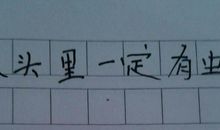 头里一定有